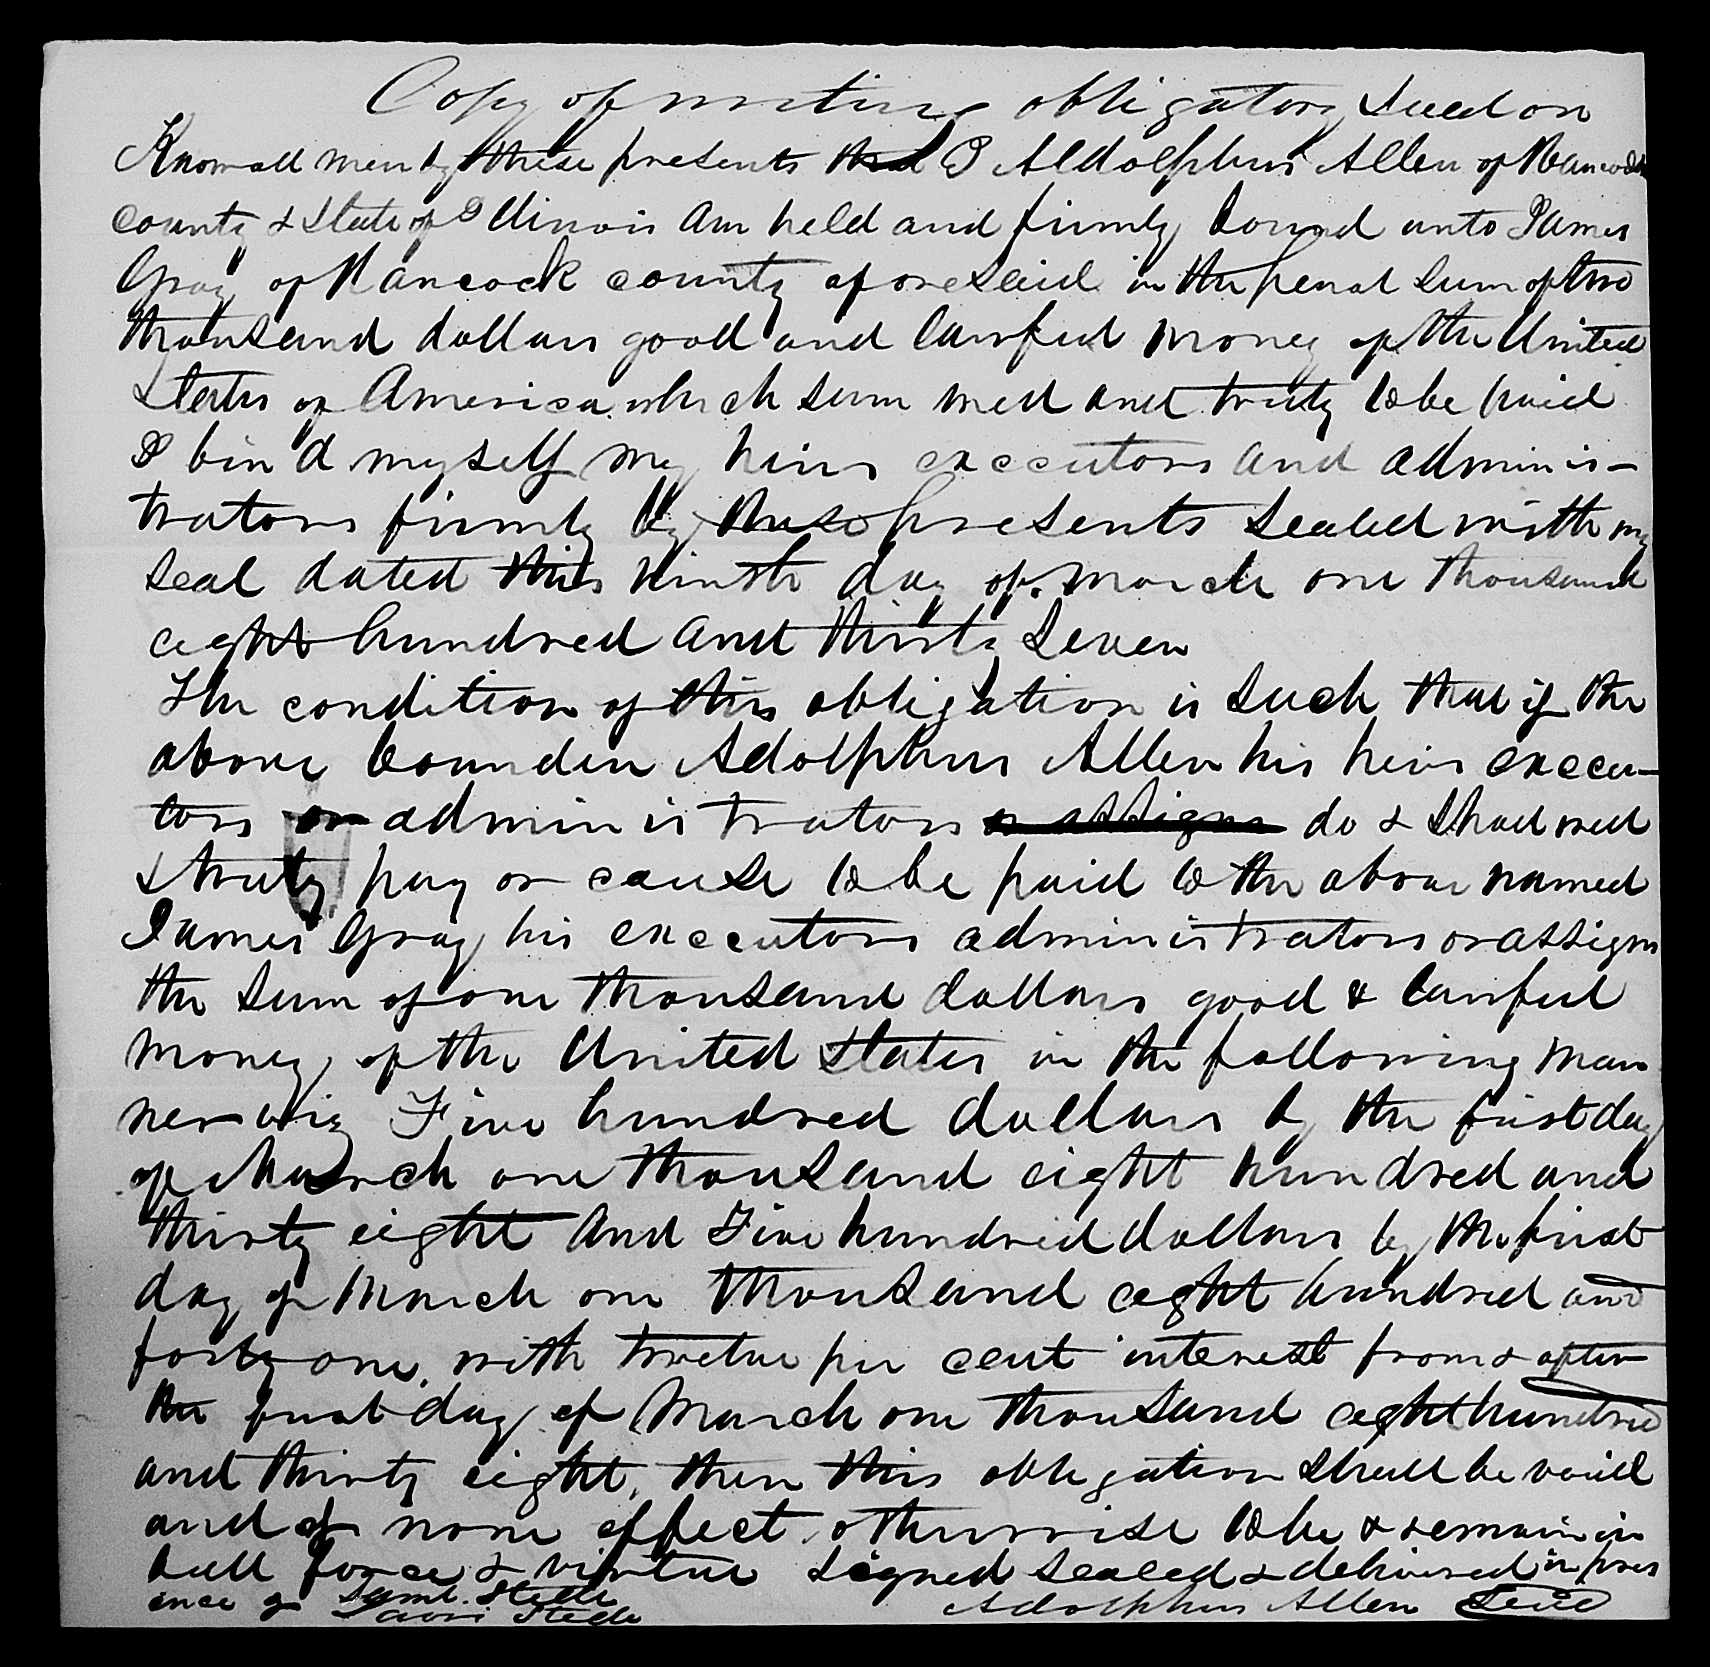 Copy of writing obligatory Sued on
Know all men by these presents that I Aldolphus Allen of Hancock
county & State of Illinois am held and firmly bound unto James
Gray of Hancock county aforesaid in the penal sum of two
thousand dollars good and lawful money of the United
States of America which sum well and truly to be paid
I bind myself my heirs executors and adminis-
trators firmly by these presents sealed with my
seal dated this ninth day of march one thousand
eight hundred and thirty Seven
The condition of this obligation is such that if the
above bounden Adolphus Allen his heirs execu-
tors or administrators or assigns do & shall well
& truly pay or cause to be paid to the above named
James Gray his executors administrators or assigns
the sum of one thousand dollars good & lawful
money of the United States in the following man
ner viz Five hundred dollars by the first day
of March one thousand eight hundred and
thirty eight and Five hundred dollars by the first
day of March one thousand eight hundred and
forty one, with twelve per cent interest from & after
the first day of March one thousand eight hundred
and thirty eight, then this obligation shall be void
and of none effect, otherwise to be & remain in
full force & virtue signed sealed & delivered in pres
ence of Saml. Steele Adolphus Allen Seal
Steele